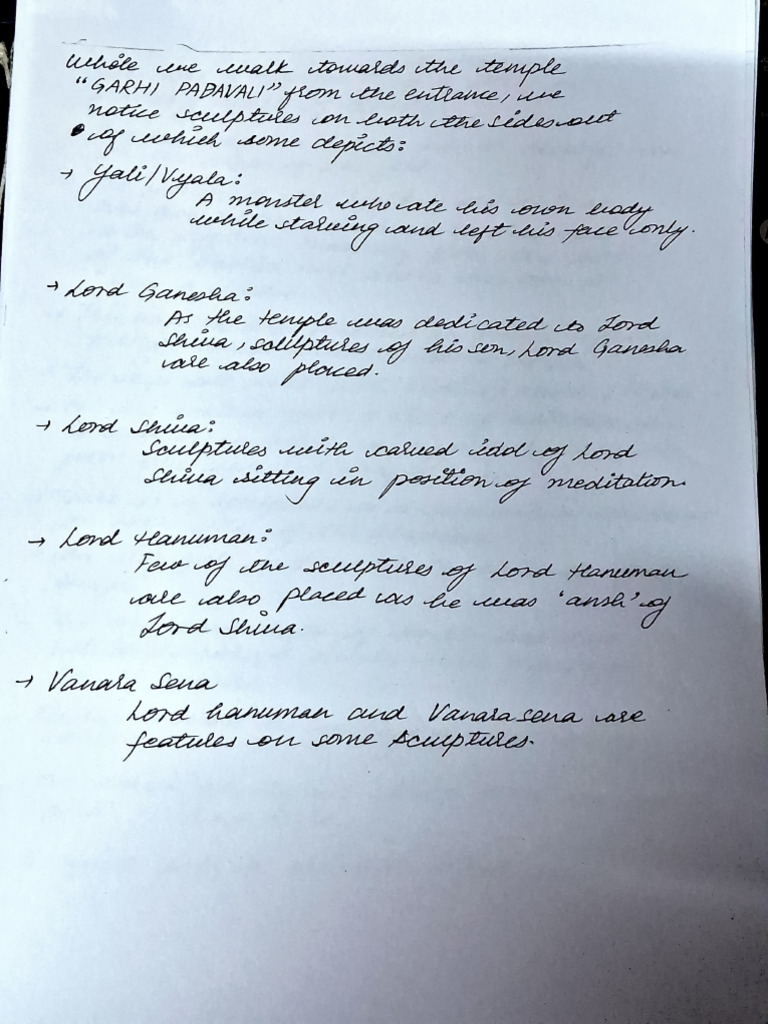 While we walk towards the temple
"GARHI PADAVALI" from the entrance, we
notice sculptures on both the sides out
of which some depicts:
→ Yali/Vyala:
A monster who ate his own body
while starving and left his face only.
→ Lord Ganesha:
As the temple was dedicated to Lord
Shiva, sculptures of his son, Lord Ganesha
are also placed.
→ Lord Shiva:
Sculptures with carved idol of Lord
Shiva sitting in position of meditation.
→ Lord Hanuman:
Few of the sculptures of Lord Hanuman
are also placed as he was 'ansh' of
Lord Shiva.
→ Vanara Sena
Lord hanuman and Vanara sena are
features on some sculptures.